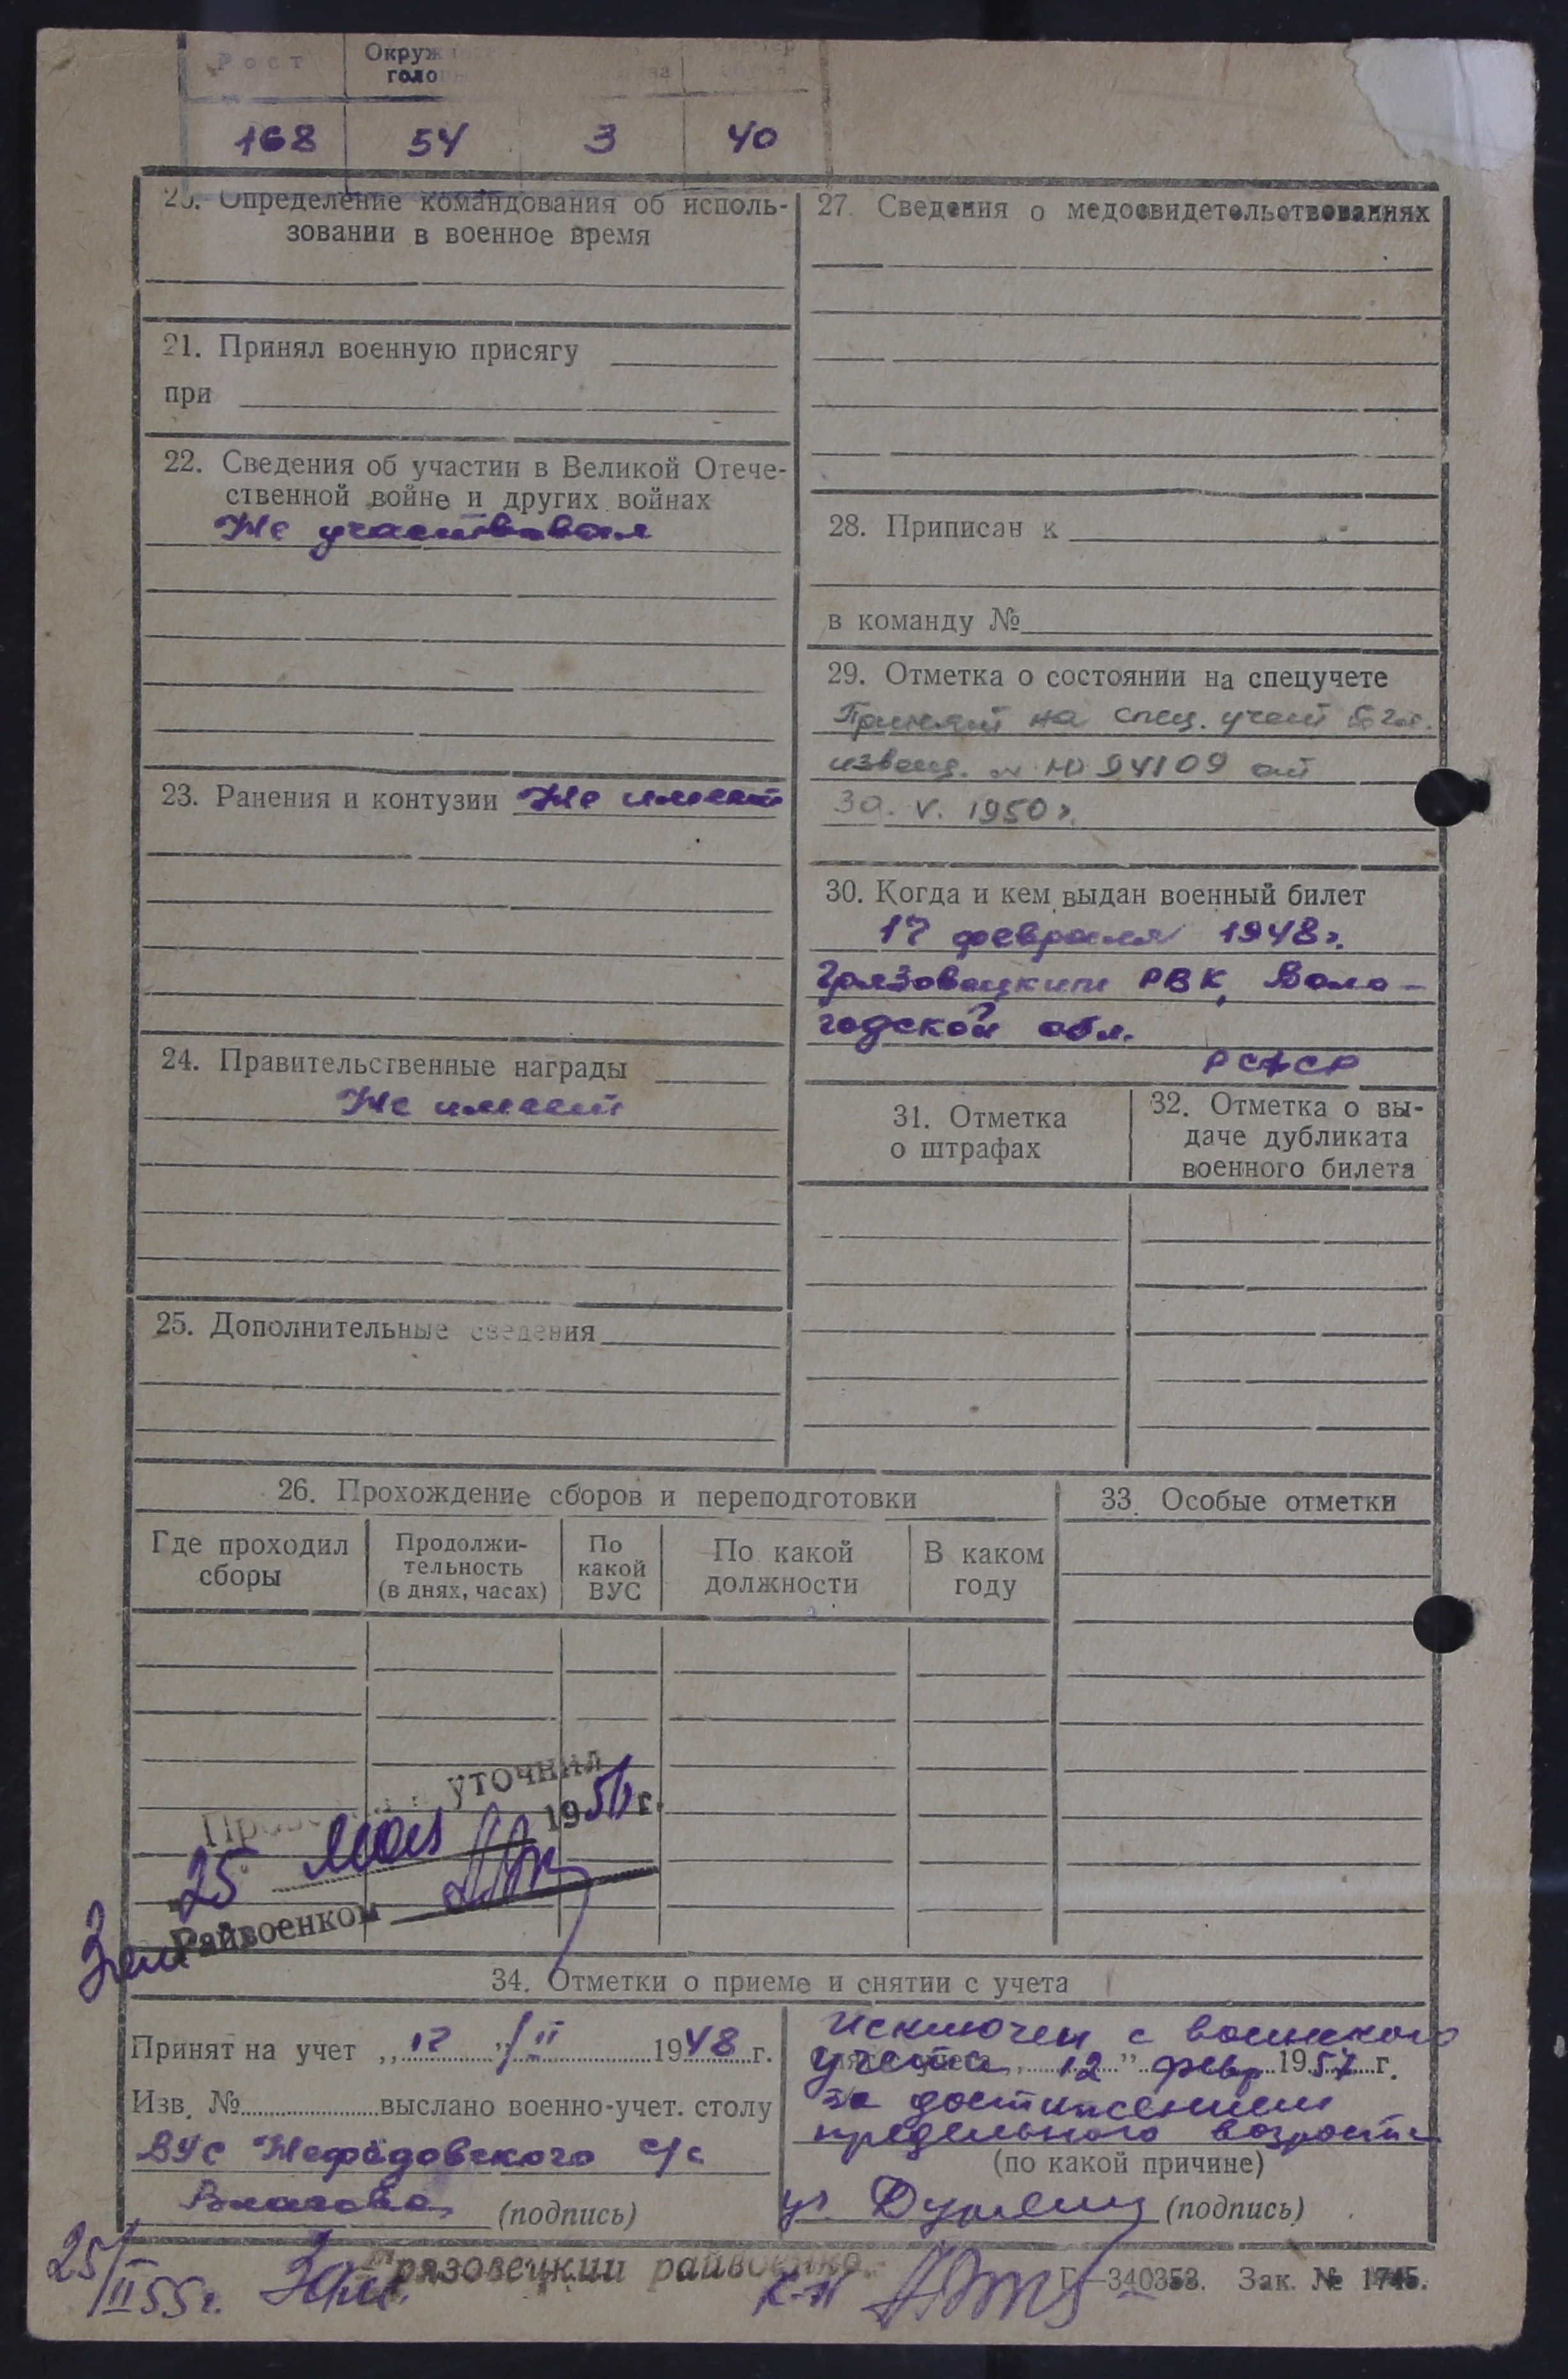 Рост
Окруж
голо
168 54 3 40
Определение командования об исполь-
зовании в военное время
21. Принял военную присягу
при
22. Сведения об участии в Великой Отече-
ственной войне и других войнах
Не участвовал
23. Ранения и контузии Не имеет
24. Правительственные награды
Не имеет
25. Дополнительные сведения
27. Сведения о медосвидетельствованиях
28. Приписан к
в команду №
29. Отметка о состоянии на спецучете
Принят на спец. учет
извещ. 94109 от
30. V. 1950г.
30. Когда и кем выдан военный билет
17 февраля 1948г.
Грязовецким РВК, Воло-
годской обл.
РСФСР
31. Отметка
о штрафах
32. Отметка о вы-
даче дубликата
военного билета
26. Прохождение сборов и переподготовки
Где проходил
сборы
Продолжи-
тельность
(в днях, часах)
По
какой
ВУС
По какой
должности
В каком
году
33. Особые отметки
уточнил
25 мая 195 г.
Зам Райвоенком
34. Отметки о приеме и снятии с учета
Принят на учет „17" II 1948 г.
Изв. № выслано военно-учет. столу
ВУС Нефёдовского с/с
(подпись)
Исключен с воинского
учета „12" февр 1957 г.
за достижением
предельного возраста
(по какой причине)
(подпись)
25/II 55г. Зам. Грязовецкий райвоенко
к-н
Г—340353. Зак. № 1745.